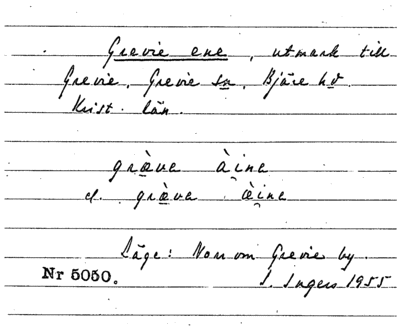 Grevie ene, utmark till
Grevie, Grevie sn, Bjäre hd.
Krist. län.
grèva àina
el. grèva æ̀ina
Läge: Norr om Grevie by.
Nr 5050.
I. Ingers 1955